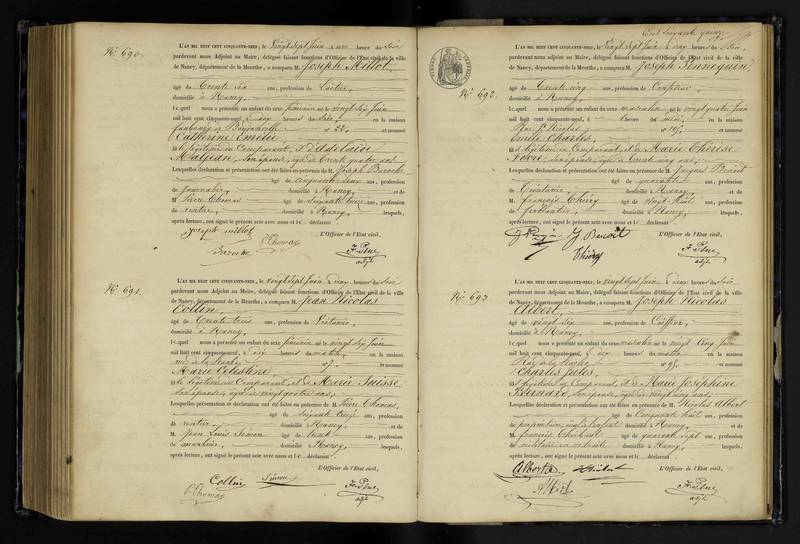 N.° 690.
L'AN MIL HUIT CENT CINQUANTE-NEUF, le vingt sept Juin à une heure du soir
pardevant nous Adjoint au Maire, délégué faisant fonctions d'Officier de l'Etat civil de la ville
de Nancy, département de la Meurthe, a comparu M. Joseph Millot,
âgé de Trente six ans, profession de
domicilié à Nancy,
lequel nous a présenté un enfant du sexe féminin né le vingt six Juin
mil huit cent cinquante-neuf, à dix heures du soir, en la maison
faubourg de n° 22, et nommé
Catherine Emélie
fille légitime du Comparant, et d'Adelaïde
Maljean, son épouse, âgée de Trente quatre ans
Lesquelles déclaration et présentation ont été faites en présence de M. Joseph Baroche
âgé de cinquante deux ans, profession
de journalier, domicilié à Nancy, et de
M. Pierre Thomas âgé de soixante treize ans, profession
de rentier, domicilié à Nancy, lesquels,
après lecture, ont signé le présent acte avec nous et le déclarant
L'Officier de l'Etat civil,
Joseph millot
Baroche
P. Thomas
adjt
N.° 691.
L'AN MIL HUIT CENT CINQUANTE-NEUF, le vingt sept Juin à deux heures du soir
pardevant nous Adjoint au Maire, délégué faisant fonctions d'Officier de l'Etat civil de la ville
de Nancy, département de la Meurthe, a comparu M. Jean Nicolas
Collin,
âgé de Trente trois ans, profession de
domicilié à Nancy,
lequel nous a présenté un enfant du sexe féminin né le vingt six Juin
mil huit cent cinquante-neuf, à dix heures du matin, en la maison
n° 7, et nommé
Marie Célestine
fille légitime du Comparant, et de Marie Suisse
son épouse, âgée de vingt quatre ans,
Lesquelles déclaration et présentation ont été faites en présence de M. Pierre Thomas,
âgé de soixante treize ans, profession
de rentier, domicilié à Nancy, et de
M. Jean Louis Simon âgé de trente ans, profession
de domicilié à Nancy, lesquels,
après lecture, ont signé le présent acte avec nous et le déclarant
L'Officier de l'Etat civil,
Collin
Simon
P. Thomas
adjt
Cent soixante quinze
N.° 692.
L'AN MIL HUIT CENT CINQUANTE-NEUF, le vingt sept Juin à deux heures du soir,
pardevant nous Adjoint au Maire, délégué faisant fonctions d'Officier de l'Etat civil de la ville
de Nancy, département de la Meurthe, a comparu M. Joseph
âgé de Trente cinq ans, profession de
domicilié à Nancy,
lequel nous a présenté un enfant du sexe masculin né le vingt quatre Juin
mil huit cent cinquante-neuf, à heures du en la maison
Rue St. Nicolas n° et nommé
Emile Charles,
fils légitime du Comparant, et de Marie Thérèse
Fèvre, son épouse, âgée de Trente cinq ans,
Lesquelles déclaration et présentation ont été faites en présence de M. Jacques Benoit
âgé de quarante ans, profession
de domicilié à Nancy, et de
M. François Thiéry âgé de vingt huit ans, profession
de ferblantier, domicilié à Nancy, lesquels,
après lecture, ont signé le présent acte avec nous et le déclarant
L'Officier de l'Etat civil,
J Benoît
Thiéry
adjt
N.° 693
L'AN MIL HUIT CENT CINQUANTE-NEUF, le vingt sept Juin à deux heures du soir
pardevant nous Adjoint au Maire, délégué faisant fonctions d'Officier de l'Etat civil de la ville
de Nancy, département de la Meurthe, a comparu M. Joseph Nicolas
Albert,
âgé de vingt six ans, profession de Coiffeur,
domicilié à Nancy,
lequel nous a présenté un enfant du sexe masculin né le vingt cinq Juin
mil huit cent cinquante-neuf, à dix heures du matin en la maison
n° et nommé
Charles Jules,
fils légitime du Comparant, et de Marie Joséphine
Bernard, son épouse, âgée de vingt cinq ans,
Lesquelles déclaration et présentation ont été faites en présence de M. Nicolas Albert
âgé de cinquante huit ans, profession
de propriétaire, domicilié à Nancy, et de
M. François âgé de quarante sept ans, profession
de militaire en retraite domicilié à Nancy, lesquels,
après lecture, ont signé le présent acte avec nous et le déclarant
L'Officier de l'Etat civil,
Albert
adjt